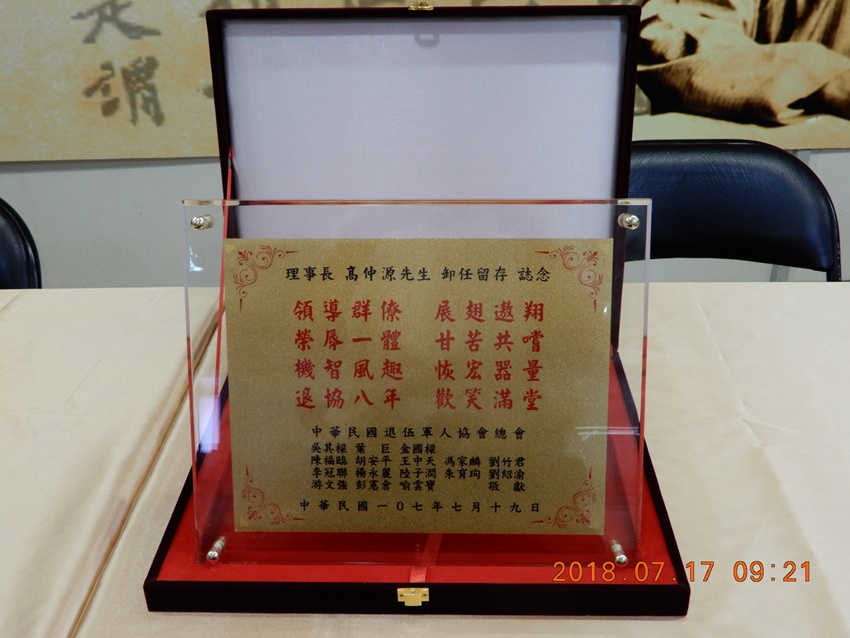 是
謂
理事長 高仲源先生 卸任留存 誌念
領導群僚 展翅遨翔
榮辱一體 甘苦共嚐
機智風趣 恢宏器量
退協八年 歡笑滿堂
中華民國退伍軍人協會總會
吳其樑 葉 巨 金國樑
陳福臨 胡安平 王中天 馮家麟 劉竹君
李冠聯 楊永麗 陸子潤 朱育珣 劉紹渝
游文強 彭憲倉 喻雲寶 敬 獻
中華民國一0七年七月十九日
2018.07.17 09:21